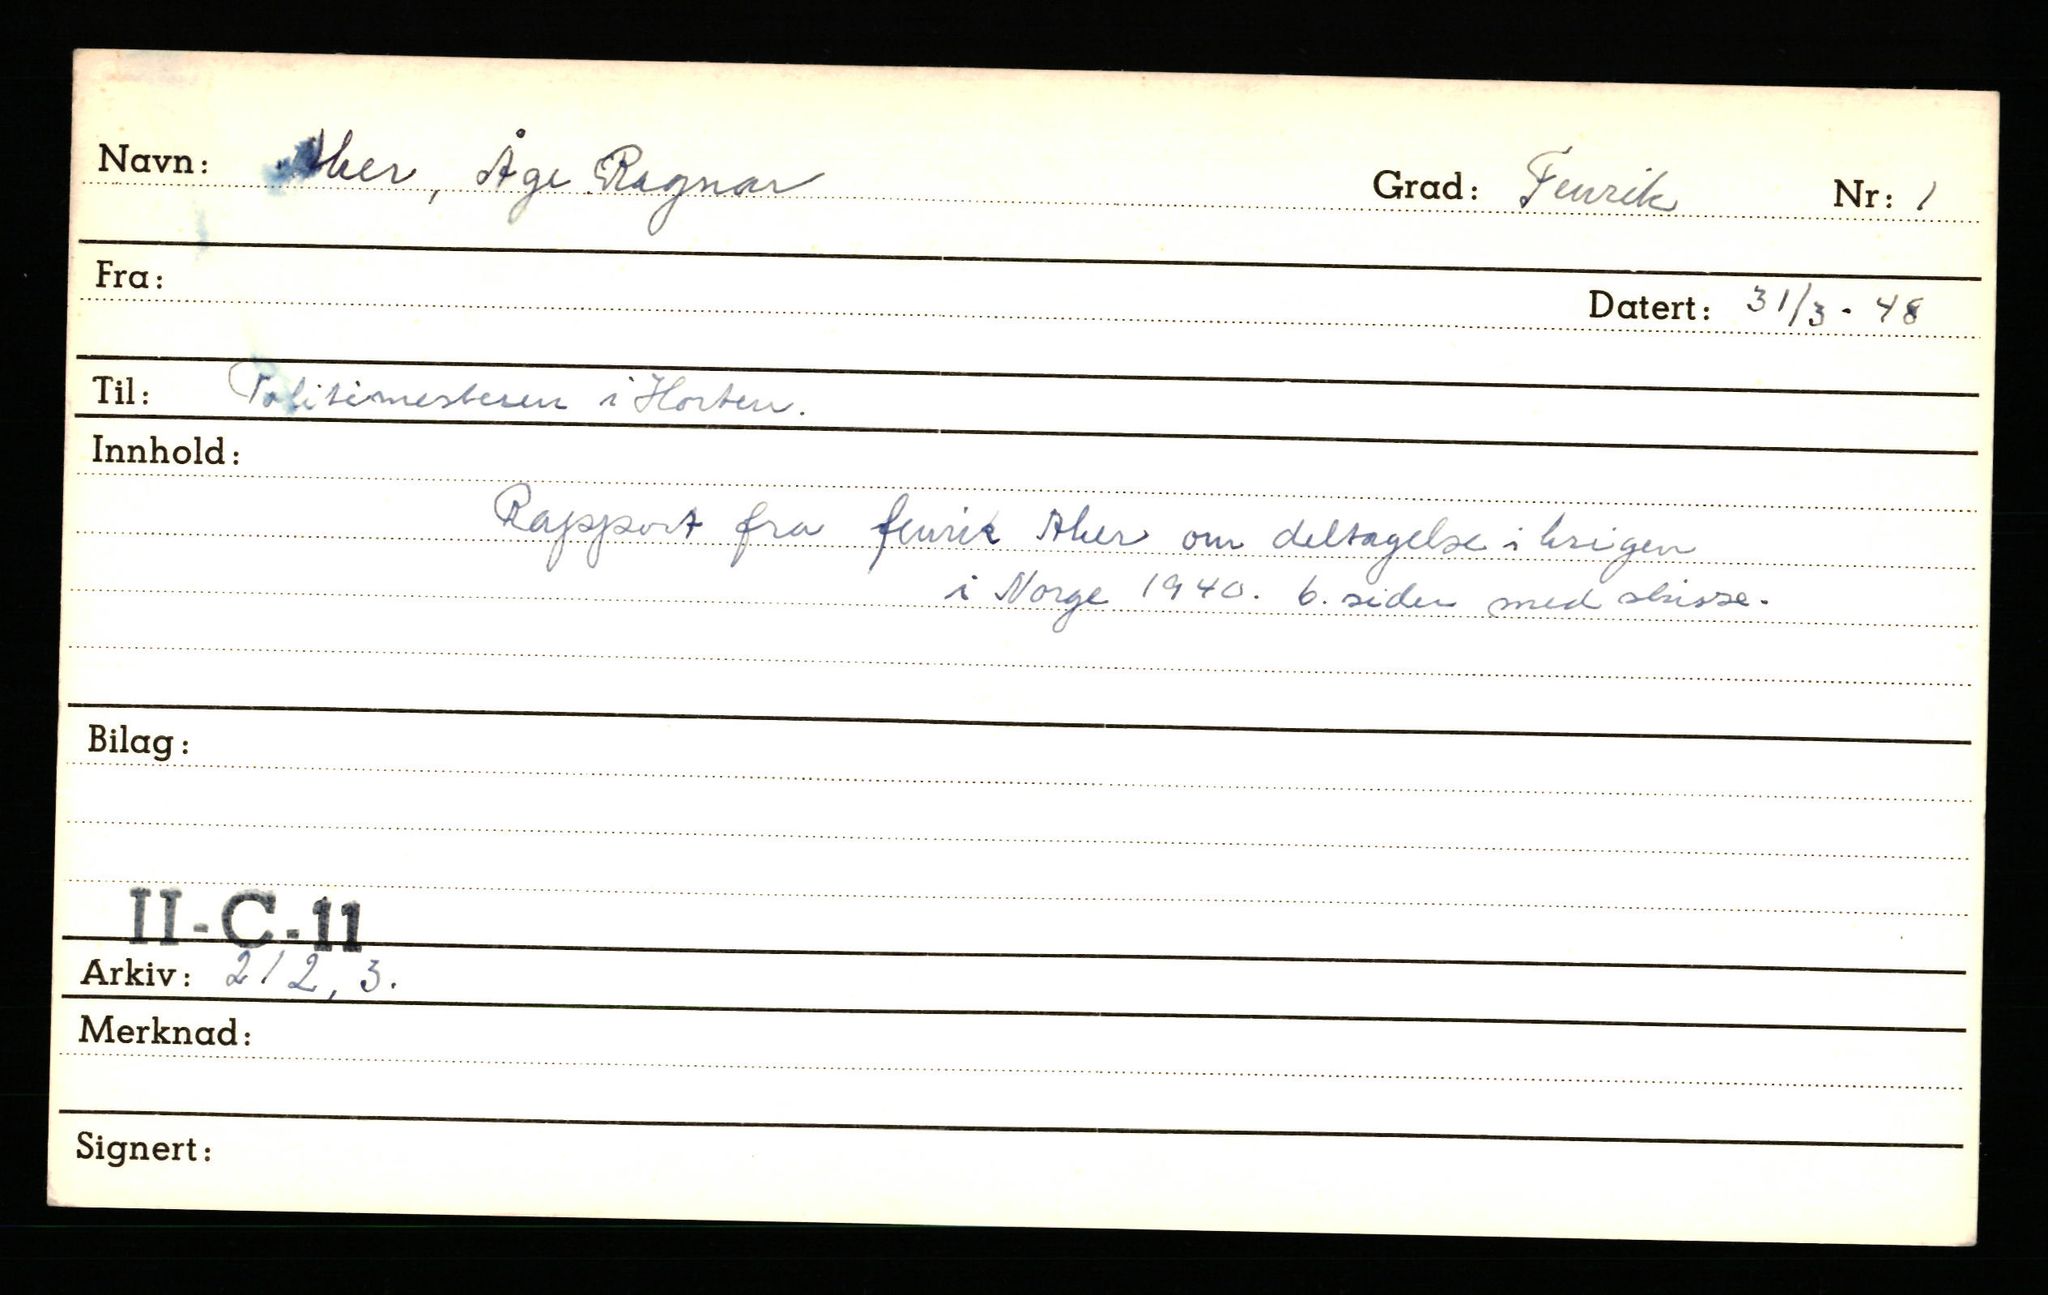 Navn: Aker, Åge Ragnar Grad: Fenrik Nr: 1
Fra:
Datert: 31/3-48
Til: Politimesteren i Horten.
Innhold:
Rapport fra fenrik Aker om deltagelse i krigen
i Norge 1940. 6. sider med skisse.
Bilag:
II-C-11
Arkiv: 212,3.
Merknad:
Signert: